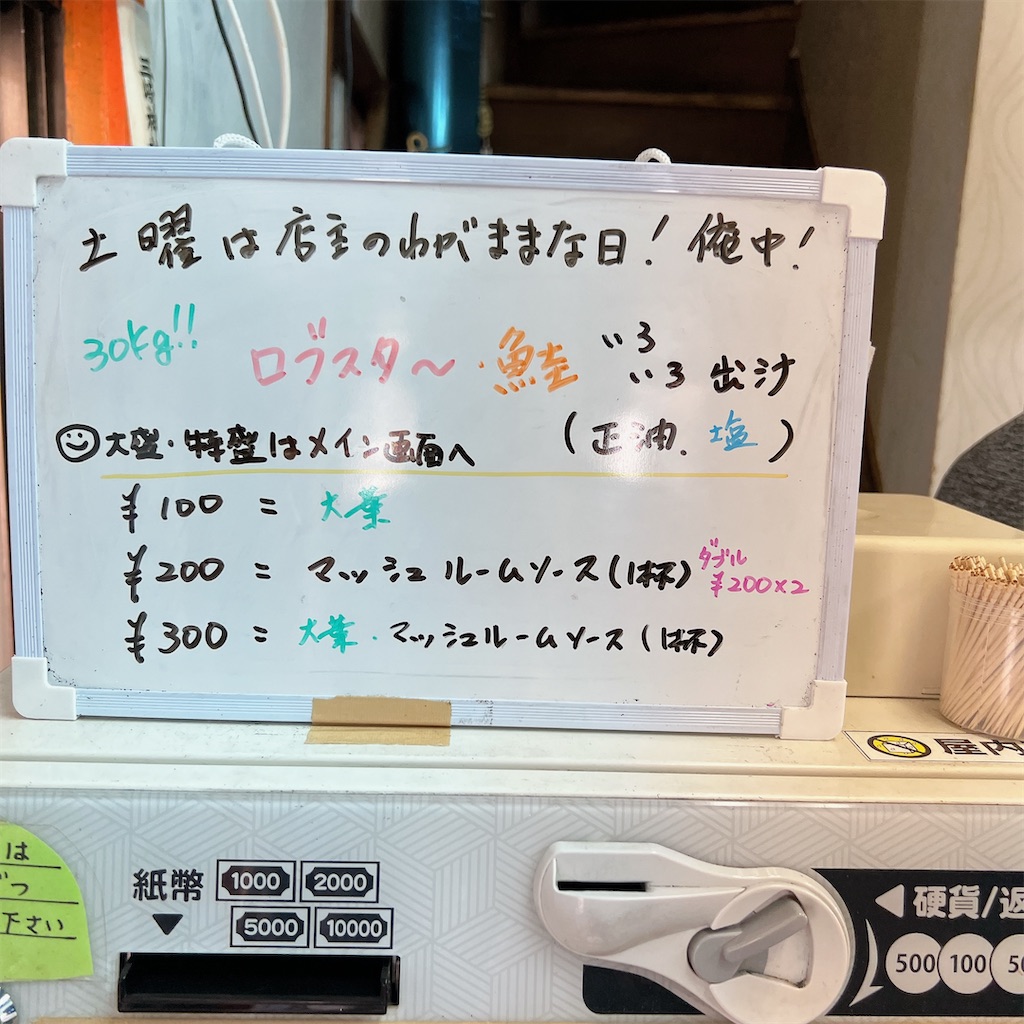 土曜は店主のわがままな日！俺中！
30kg!!
ロブスター〜・鮭 いろいろ出汁
(正油、塩)
大盛・特盛はメイン画面へ
¥100 = 大葉
¥200 = マッシュルームソース(1杯) ダブル ¥200×2
¥300 = 大葉・マッシュルームソース(1杯)
屋内
は
下さい
紙幣
1000 2000
5000 10000
硬貨/返
500 100 50